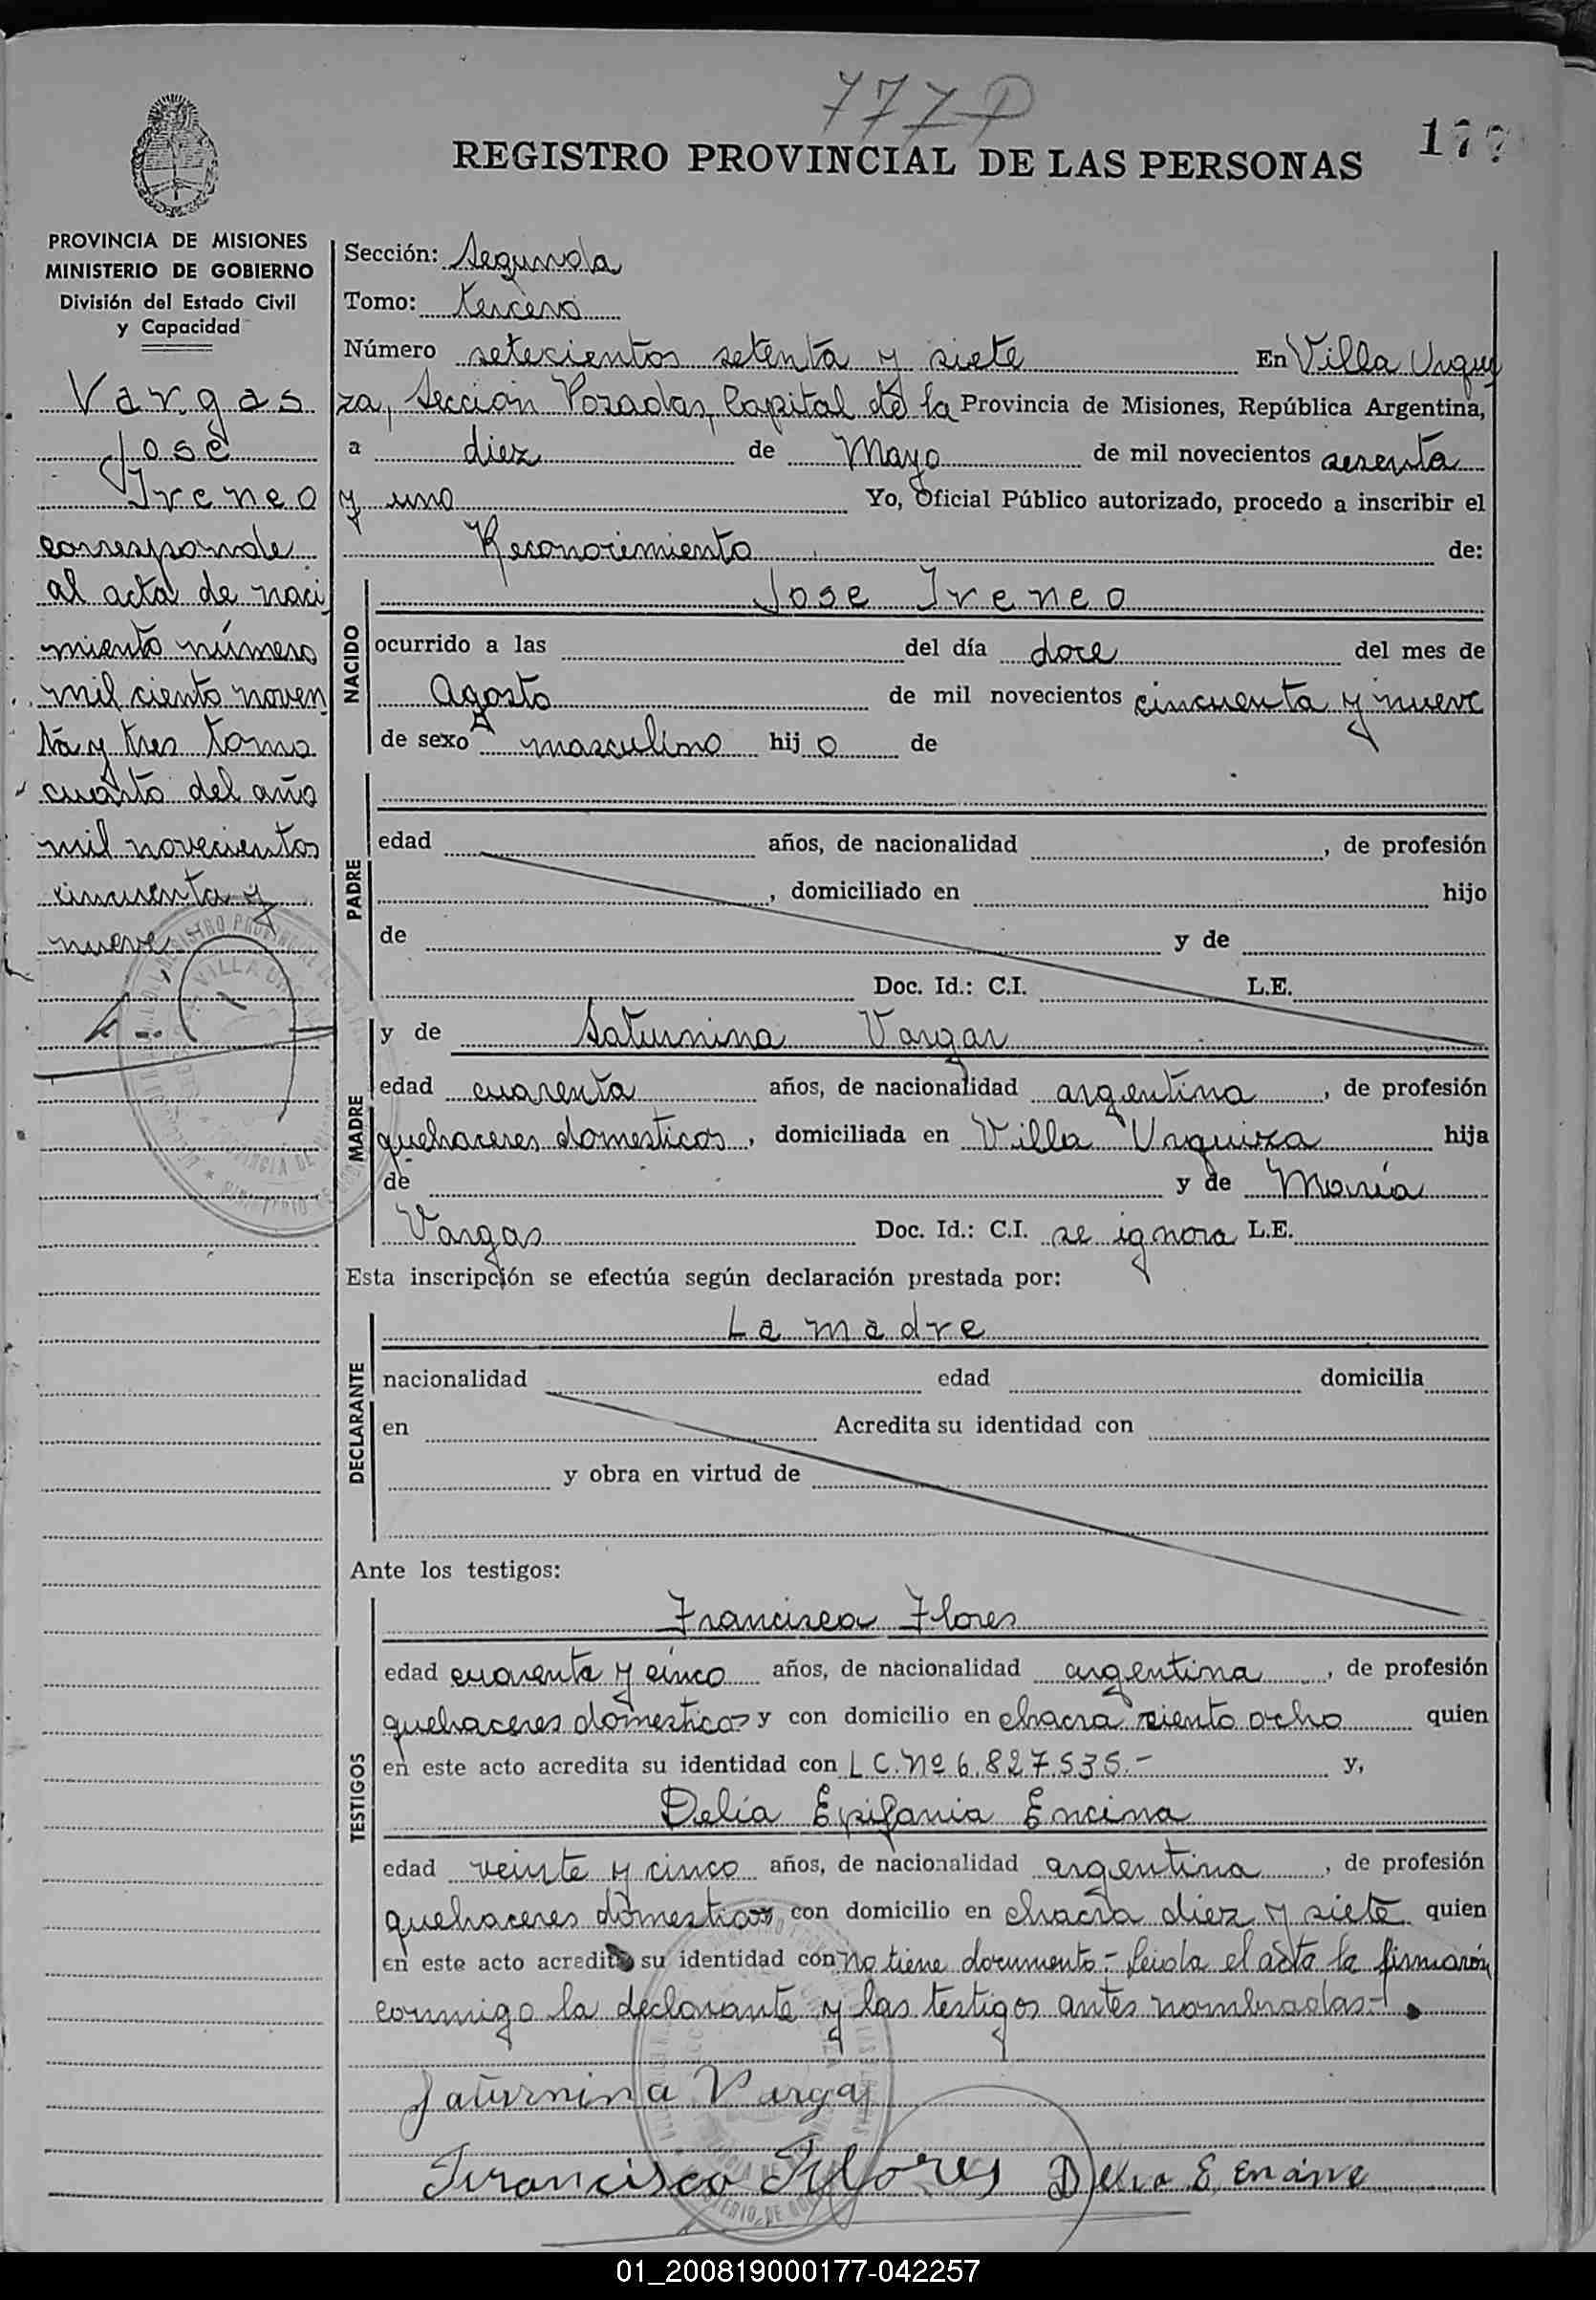 777 P
177
REGISTRO PROVINCIAL DE LAS PERSONAS
PROVINCIA DE MISIONES
MINISTERIO DE GOBIERNO
División del Estado Civil
y Capacidad
Vargas
José
Ireneo
corresponde
al acta de naci
miento número
mil ciento noven
ta y tres tomo
cuarto del año
mil novecientos
cincuenta y
nueve
Sección: Segunda
Tomo: tercero
Número setecientos setenta y siete En Villa Urqui
za, Sección Posadas, Capital de la Provincia de Misiones, República Argentina,
a diez de Mayo de mil novecientos sesenta
y uno Yo, Oficial Público autorizado, procedo a inscribir el
Reconocimiento de:
NACIDO
Jose Ireneo
ocurrido a las del día doce del mes de
Agosto de mil novecientos cincuenta y nueve
de sexo masculino hij o de
PADRE
edad años, de nacionalidad , de profesión
, domiciliado en hijo
de y de
Doc. Id.: C.I. L.E.
MADRE
y de Saturnina Vargas
edad cuarenta años, de nacionalidad argentina , de profesión
quehaceres domesticos , domiciliada en Villa Urquiza hija
de y de María
Vargas Doc. Id.: C.I. se ignora L.E.
Esta inscripción se efectúa según declaración prestada por:
DECLARANTE
La madre
nacionalidad edad domicilia
en Acredita su identidad con
y obra en virtud de
Ante los testigos:
TESTIGOS
Francisca Flores
edad cuarenta y cinco años, de nacionalidad argentina , de profesión
quehaceres domesticos y con domicilio en chacra ciento ocho quien
en este acto acredita su identidad con L C. Nº 6.827.535.- y,
Delia Epifania Encina
edad veinte y cinco años, de nacionalidad argentina , de profesión
quehaceres domesticos con domicilio en chacra diez y siete quien
en este acto acredita su identidad con no tiene documento - Leida el acta la firmarón
conmigo la declarante y las testigos antes nombradas-
Saturnina Vargas
Francisca Flores Delia E, Encina
01_200819000177-042257